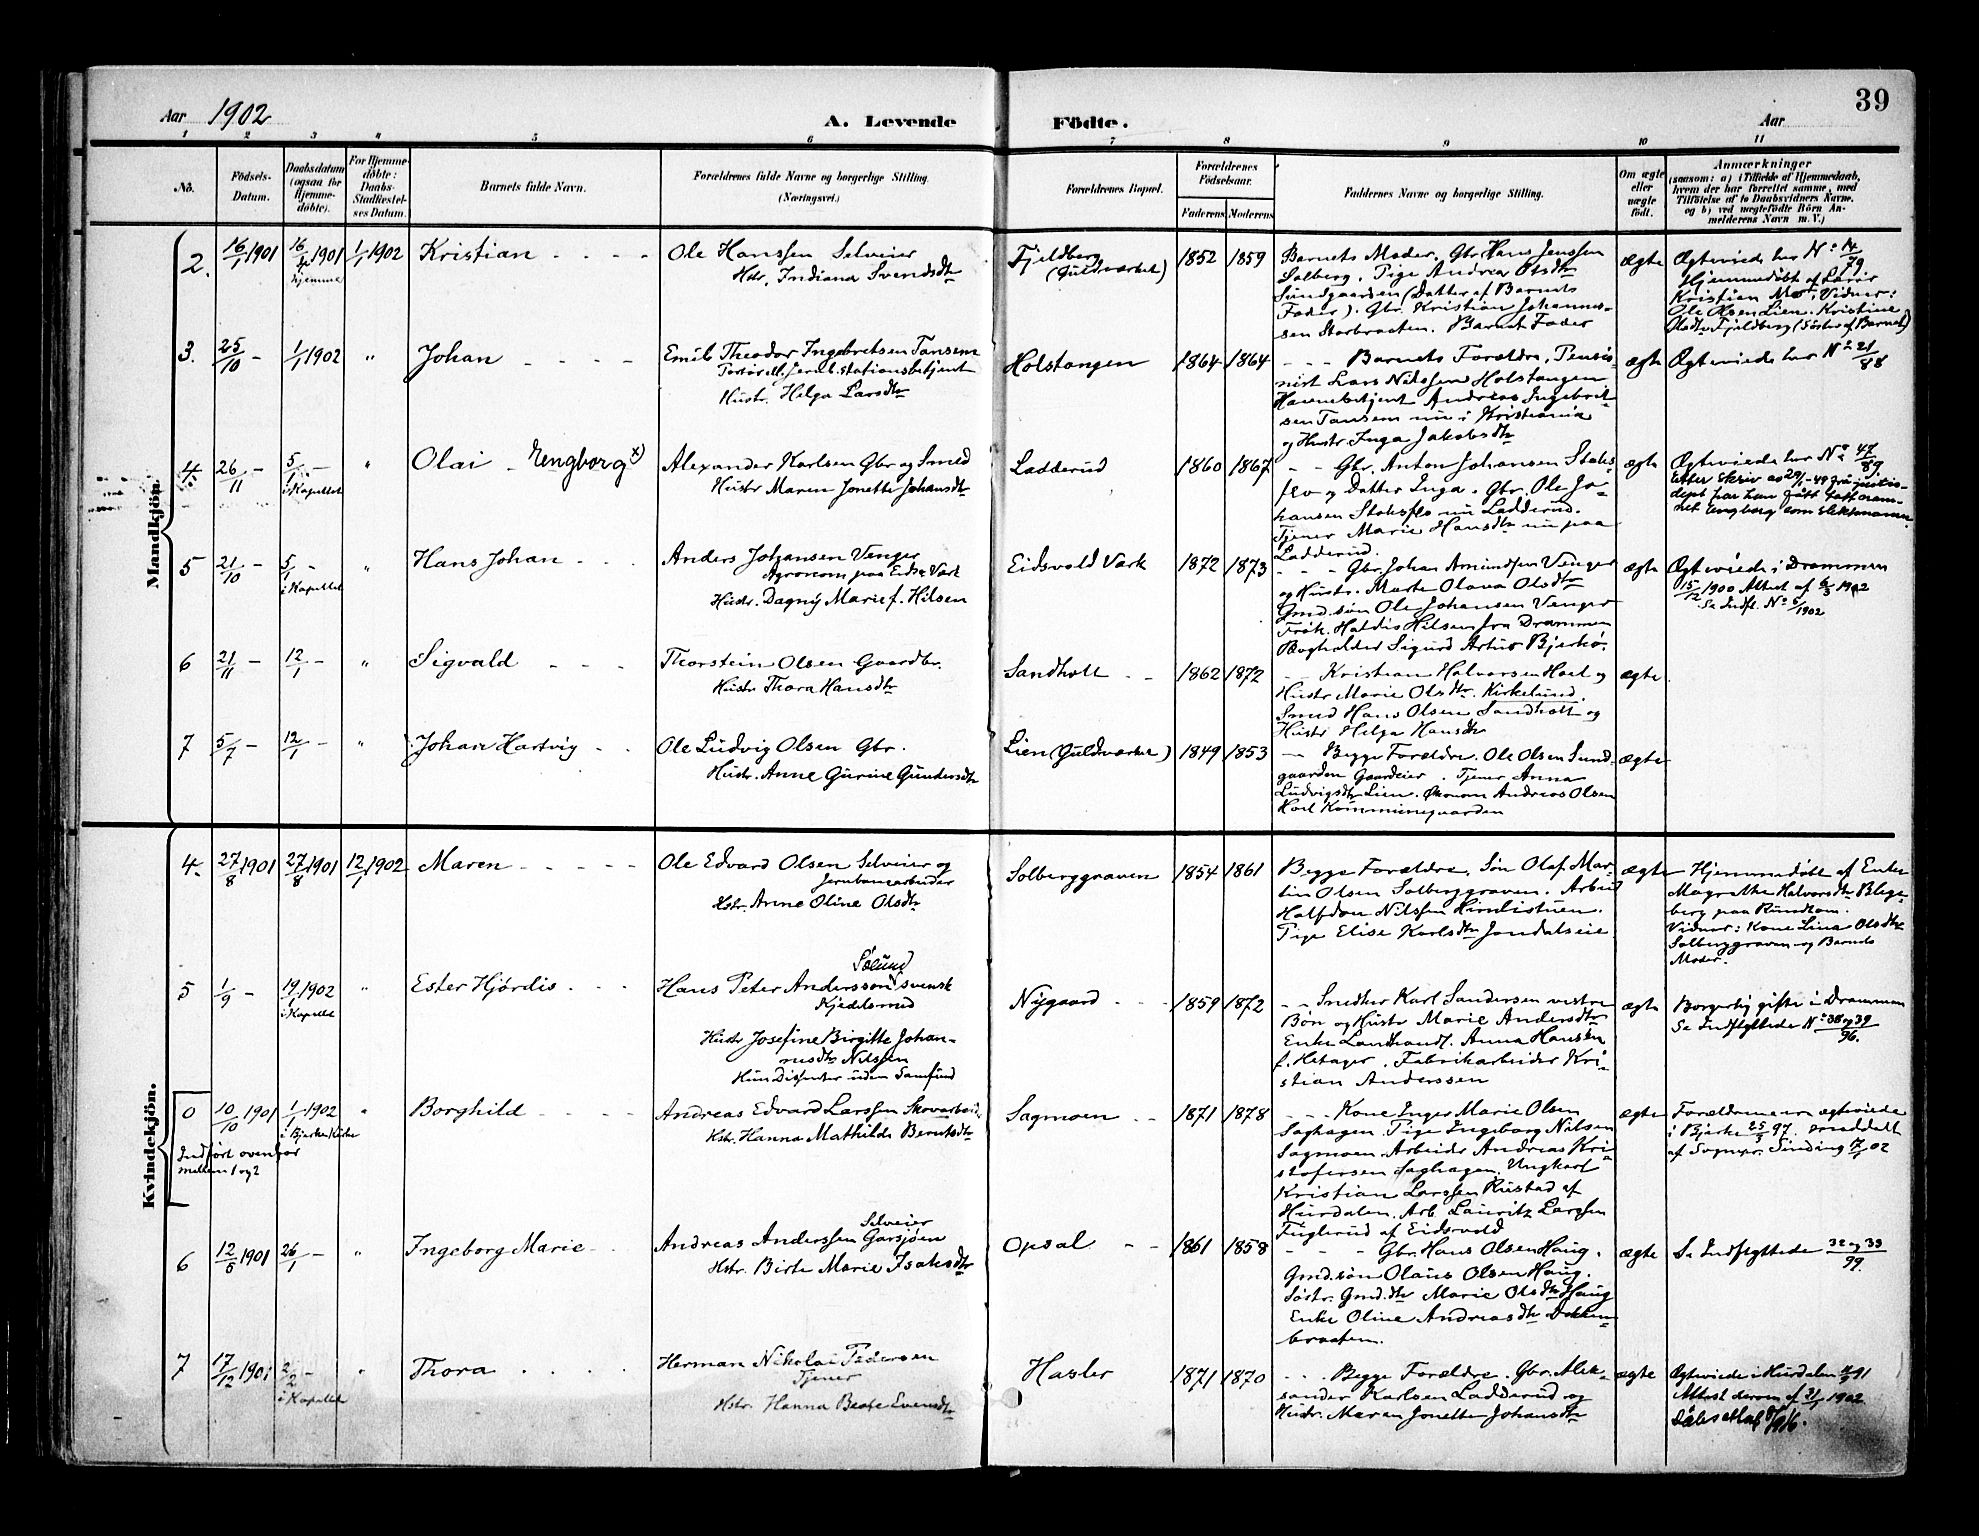 39
Aar 1902
A. Levende Födte.
Aar
1 2 3 4 5 6 7 8 9 10 11
No.
Födsels-Datum.
Daabsdatum (ogsaa för Hjemme-döbte).
For Hjemme-döbte: Daabs-Stadfæstel-ses Datum.
Barnets fulde Navn.
Forældrenes fulde Navne og borgerlige Stilling. (Næringsvei.)
Forældrenes Bopæl.
Forældrenes Födselsaar.
Faderens Moderens
Faddernes Navne og borgerlige Stilling.
Om ægte eller uægte födt.
Anmærkninger
(saasom: a) i Tilfælde af Hjemmedaab,
hvem der har forrettet samme, med
Tilföielse af to Daabsvidners Navne,
og b) ved uægtefödte Börn An-
melderens Navn m. V.)
Mandkjön.
2. 16/1 1901 16/4 1901 hjemme 1/1 1902 Kristian
Ole Hanssen Selveier
Hstr. Indiana Svendsdtr
Fjeldberg (Guldværket)
1852 1859
Barnets Moder. Gbr. Hans Jenssen
Solberg. Pige Andrea Olsdtr
Sundgaarden (Datter af Barnets
Fader). Gbr. Kristian Johannes-
sen Storbraaten. Barnets Fader
ægte
Ægteviede her No 14/79
Hjemmedöbt af Lærer
Kristian Moe, Vidner:
Ole Olsen Lien. Kristine
Olsdtr Fjeldberg (Söster af Barnet)
3. 25/10 - 1/1 1902 " Johan
Emil Theodor Ingebretsen Tansem
Jernb. stationsbetjent
Hustr. Helga Larsdtr
Holstangen
1864 1864
Barnets Forældre, Pensio-
nist Lars Nilssen Holstangen
Havnebetjent Andreas Ingebret-
sen Tansem nu i Kristiania
og Hustr Inga Jakobsdtr
ægte
Ægteviede her No 21/88
4. 26/11 - 5/1 - i Kapellet " Olai - Engborg x)
Alexander Karlsen Gbr og Smed
Hustr Maren Jonette Johansdtr
Ladderud
1860 1867
Gbr. Anton Johansen Stoks-
flo og Datter Inga. Gbr. Ole Jo-
hansen Stoksflo nu Ladderud.
Tjener Marie Hansdtr nu paa
Ladderud.
ægte
Ægteviede her No 47/89.
Etter skriv av 29/1-49 frå justis-
dept har han fått tatt
net Engborg som slektsnamn.
5 21/10 - 5/1 - i Kapellet " Hans Johan
Anders Johansen Venger
Agronom paa Eidsv. Værk
Hustr. Dagny Marie f. Hilsen
Eidsvold Værk
1872 1873
Gbr. Johan Amundsen Venger
og Hustr. Marte Olava Olsdtr
Gmd. sön Ole Johansen Venger
Frök. Haldis Hilsen fra Drammen
Bogholder Sigurd Artur Bjerkö.
ægte
Ægteviede i Drammen
15/12 1900 Attest af 6/3 1902
Se Indfl. No 6/1902
6 21/11 - 12/1 - " Sigvald
Thorstein Olsen Gaardbr.
Hustr Thora Hansdtr
Sandholt
1862 1872
Kristian Halvorsen Hoel og
Hustr Marie Olsdtr. Kirkelund.
Smed Hans Olsen Sandholt og
Hustr Helga Hansdtr
ægte
7 5/7 - 12/1 - " Johan Hartvig
Ole Ludvig Olsen Gbr.
Hustr. Anne Gurine Gundersdtr
Lien (Guldværket)
1849 1853
Begge Forældre. Ole Olsen Sund-
gaarden Gaardeier. Tjener Anna
Ludvigsdtr Lien. Økonom Andreas Olsen
Hoel Kommunegaarden
ægte
Kvindekjön.
4. 27/8 1901 27/8 1901 12/1 1902 Maren
Ole Edvard Olsen Selveier og
Jernbanearbeider
Hstr. Anne Oline Olsdtr
Solberggraven
1854 1861
Begge Forældre. Sön Olaf Mar-
tin Olsen Solberggraven. Arbeid
Halfdan Nilssen Himlistuen.
Pige Elise Karlsdtr Jondalseie
ægte
Hjemmedöbt af Enke
Magrethe Halvorsdtr Blege-
berg paa Rundtom.
Vidner: Kone Lina Olsdtr
Solberggraven og Barnets
Moder.
5 1/9 - 19/1 1902 i Kapellet " Ester Hjördis
Sælund
Hans Peter Andersson svensk
Kjedelsmed
Hustr Josefine Birgitte Johan-
nesdtr Nilssen
Hun Dissenter uden Samfund
Nygaard
1859 1872
Snedker Karl Sandersen vestre
Bön og Hustr Marie Andersdtr
Enke Landhandl. Anna Hansen
f. Hetager. Fabrikarbeider Kri-
stian Anderssen
ægte
Borgerlig gifte i Drammen
Se Indflyttede No 38 og 39/96.
0 10/10 1901 1/1 1902 i Bjerke Kirke " Borghild
Indfört ovenfor
mellem 1 og 2
Andreas Edvard Larssen Skovarbeid.
Hstr. Hanna Mathilde Berntsdtr
Sagmoen
1871 1878
Kone Inger Marie Olsen
Saghagen. Pige Ingeborg Nilsen
Sagmoen. Arbeider Andreas Kri-
stofersen Saghagen. Ungkarl
Kristian Larssen Rustad af
Hurdalen. Arb. Lauritz Larssen
Fuglerud af Eidsvold
ægte
Forældrene er ægteviede
i Bjerke 25/3 97. meddelt
af Sognepr. Sinding 17/1 02
6 12/6 1901 26/1 - " Ingeborg Marie
Selveier
Andreas Anderssen Garsjöen
Hstr. Birte Marie Isaksdtr
Opsal
1861 1858
Gbr. Hans Olsen Haug.
Gmd.sön Olaus Olsen Haug.
Söstr. Gmd.dtr Marie Olsdtr Haug
Enke Oline Andreasdtr Dokken-
braaten.
ægte
Se Indflyttede 32 og 33/99.
7 17/12 1901 2/2 - i Kapellet " Thora
Herman Nikolai Pedersen
Tjener
Hstr. Hanna Beate Evensdtr
Hasler
1871 1870
Begge Forældre. Gbr. Alek-
sander Karlsen Ladderud og
Hustr. Maren Jonette Johansdtr
ægte
Ægteviede i Hurdalen 91
Attest derom af 21/1 1902
Dåbsattest